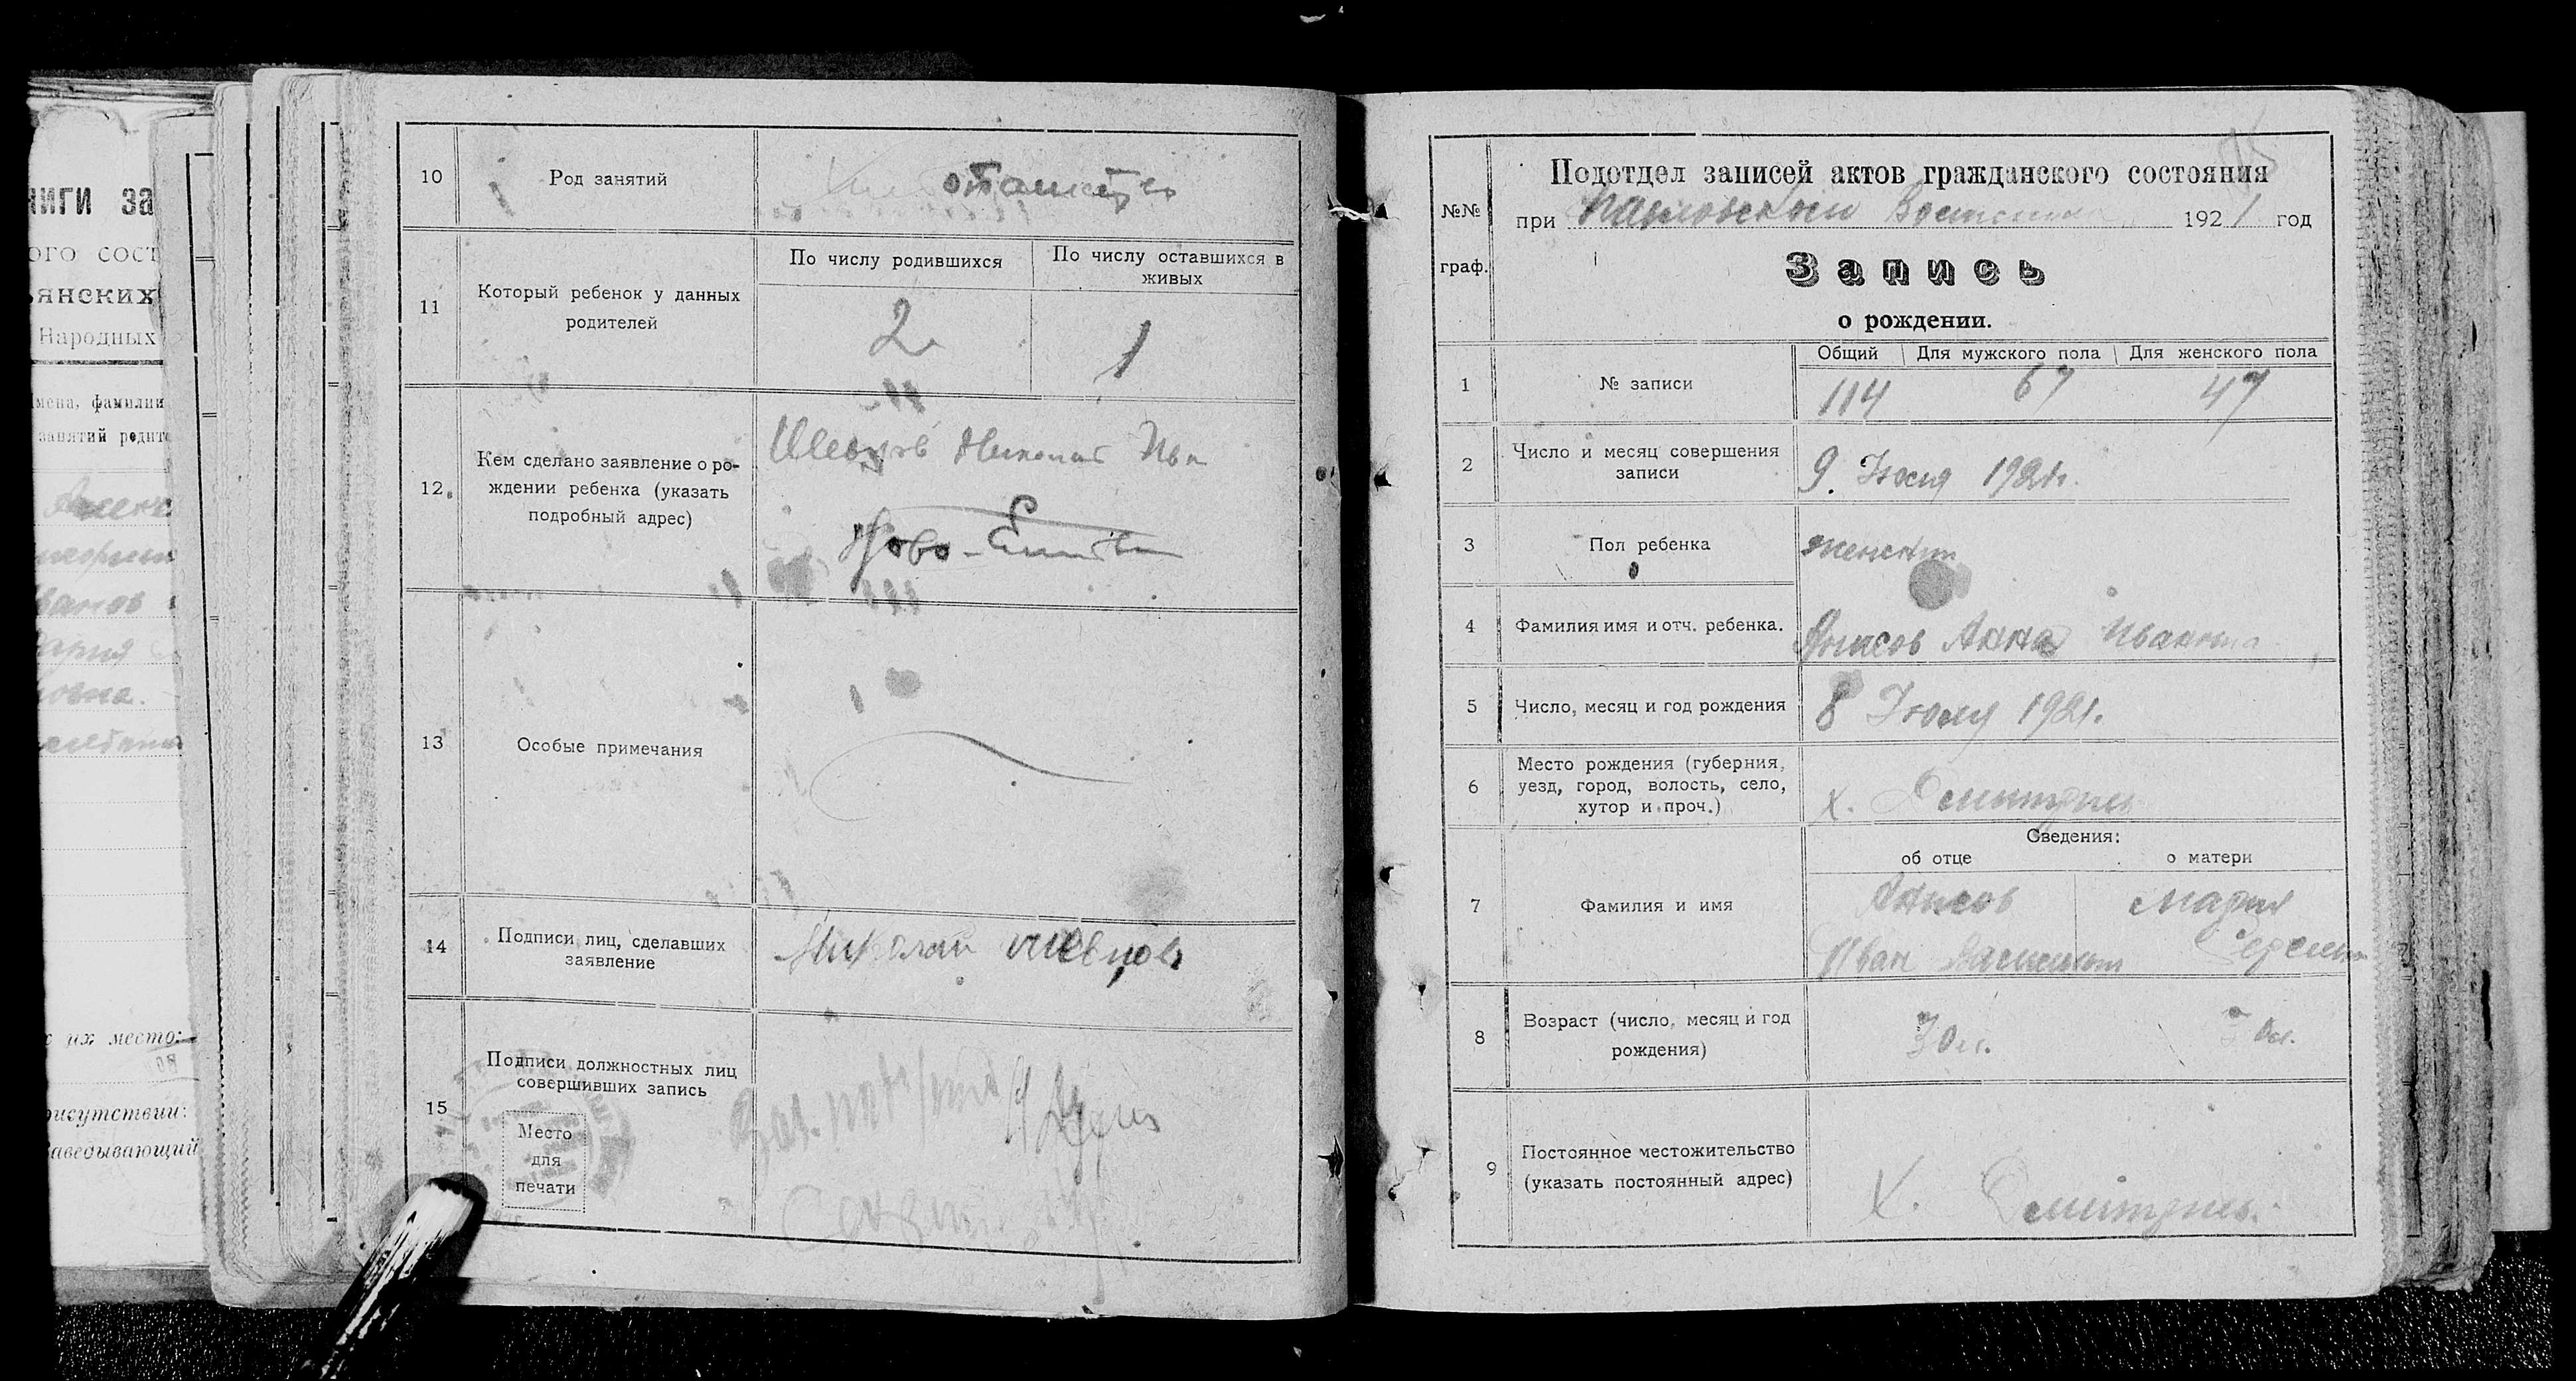 ниги за
ого сост
янских
Народных
мена, фамилии
занятий родит
их место:
рисутствии:
аведывающий
10
Род занятий
11
Который ребенок у данных
родителей
По числу родившихся
По числу оставшихся в
живых
2
1
12.
Кем сделано заявление о ро-
ждении ребенка (указать
подробный адрес)
Шевцов Николай Ив
Ново-
13
Особые примечания
14
Подписи лиц, сделавших
заявление
Николай Шевцов
15
Подписи должностных лиц
совершивших запись
Место
для
печати
№№
граф.
Подотдел записей актов гражданского состояния
при Павловском 1921 год
Запись
о рождении.
1
№ записи
Общий
Для мужского пола
Для женского пола
114
67
47
2
Число и месяц совершения
записи
9. Июля 1921г.
3
Пол ребенка
женский
4
Фамилия имя и отч. ребенка.
Анна Ивановна
5
Число, месяц и год рождения
8 Июля 1921.
6
Место рождения (губерния,
уезд, город, волость, село,
хутор и проч.)
х.
Сведения:
об отце
о матери
7
Фамилия и имя
Мария
Иван
8
Возраст (число, месяц и год
рождения)
30 л.
9
Постоянное местожительство
(указать постоянный адрес)
х.